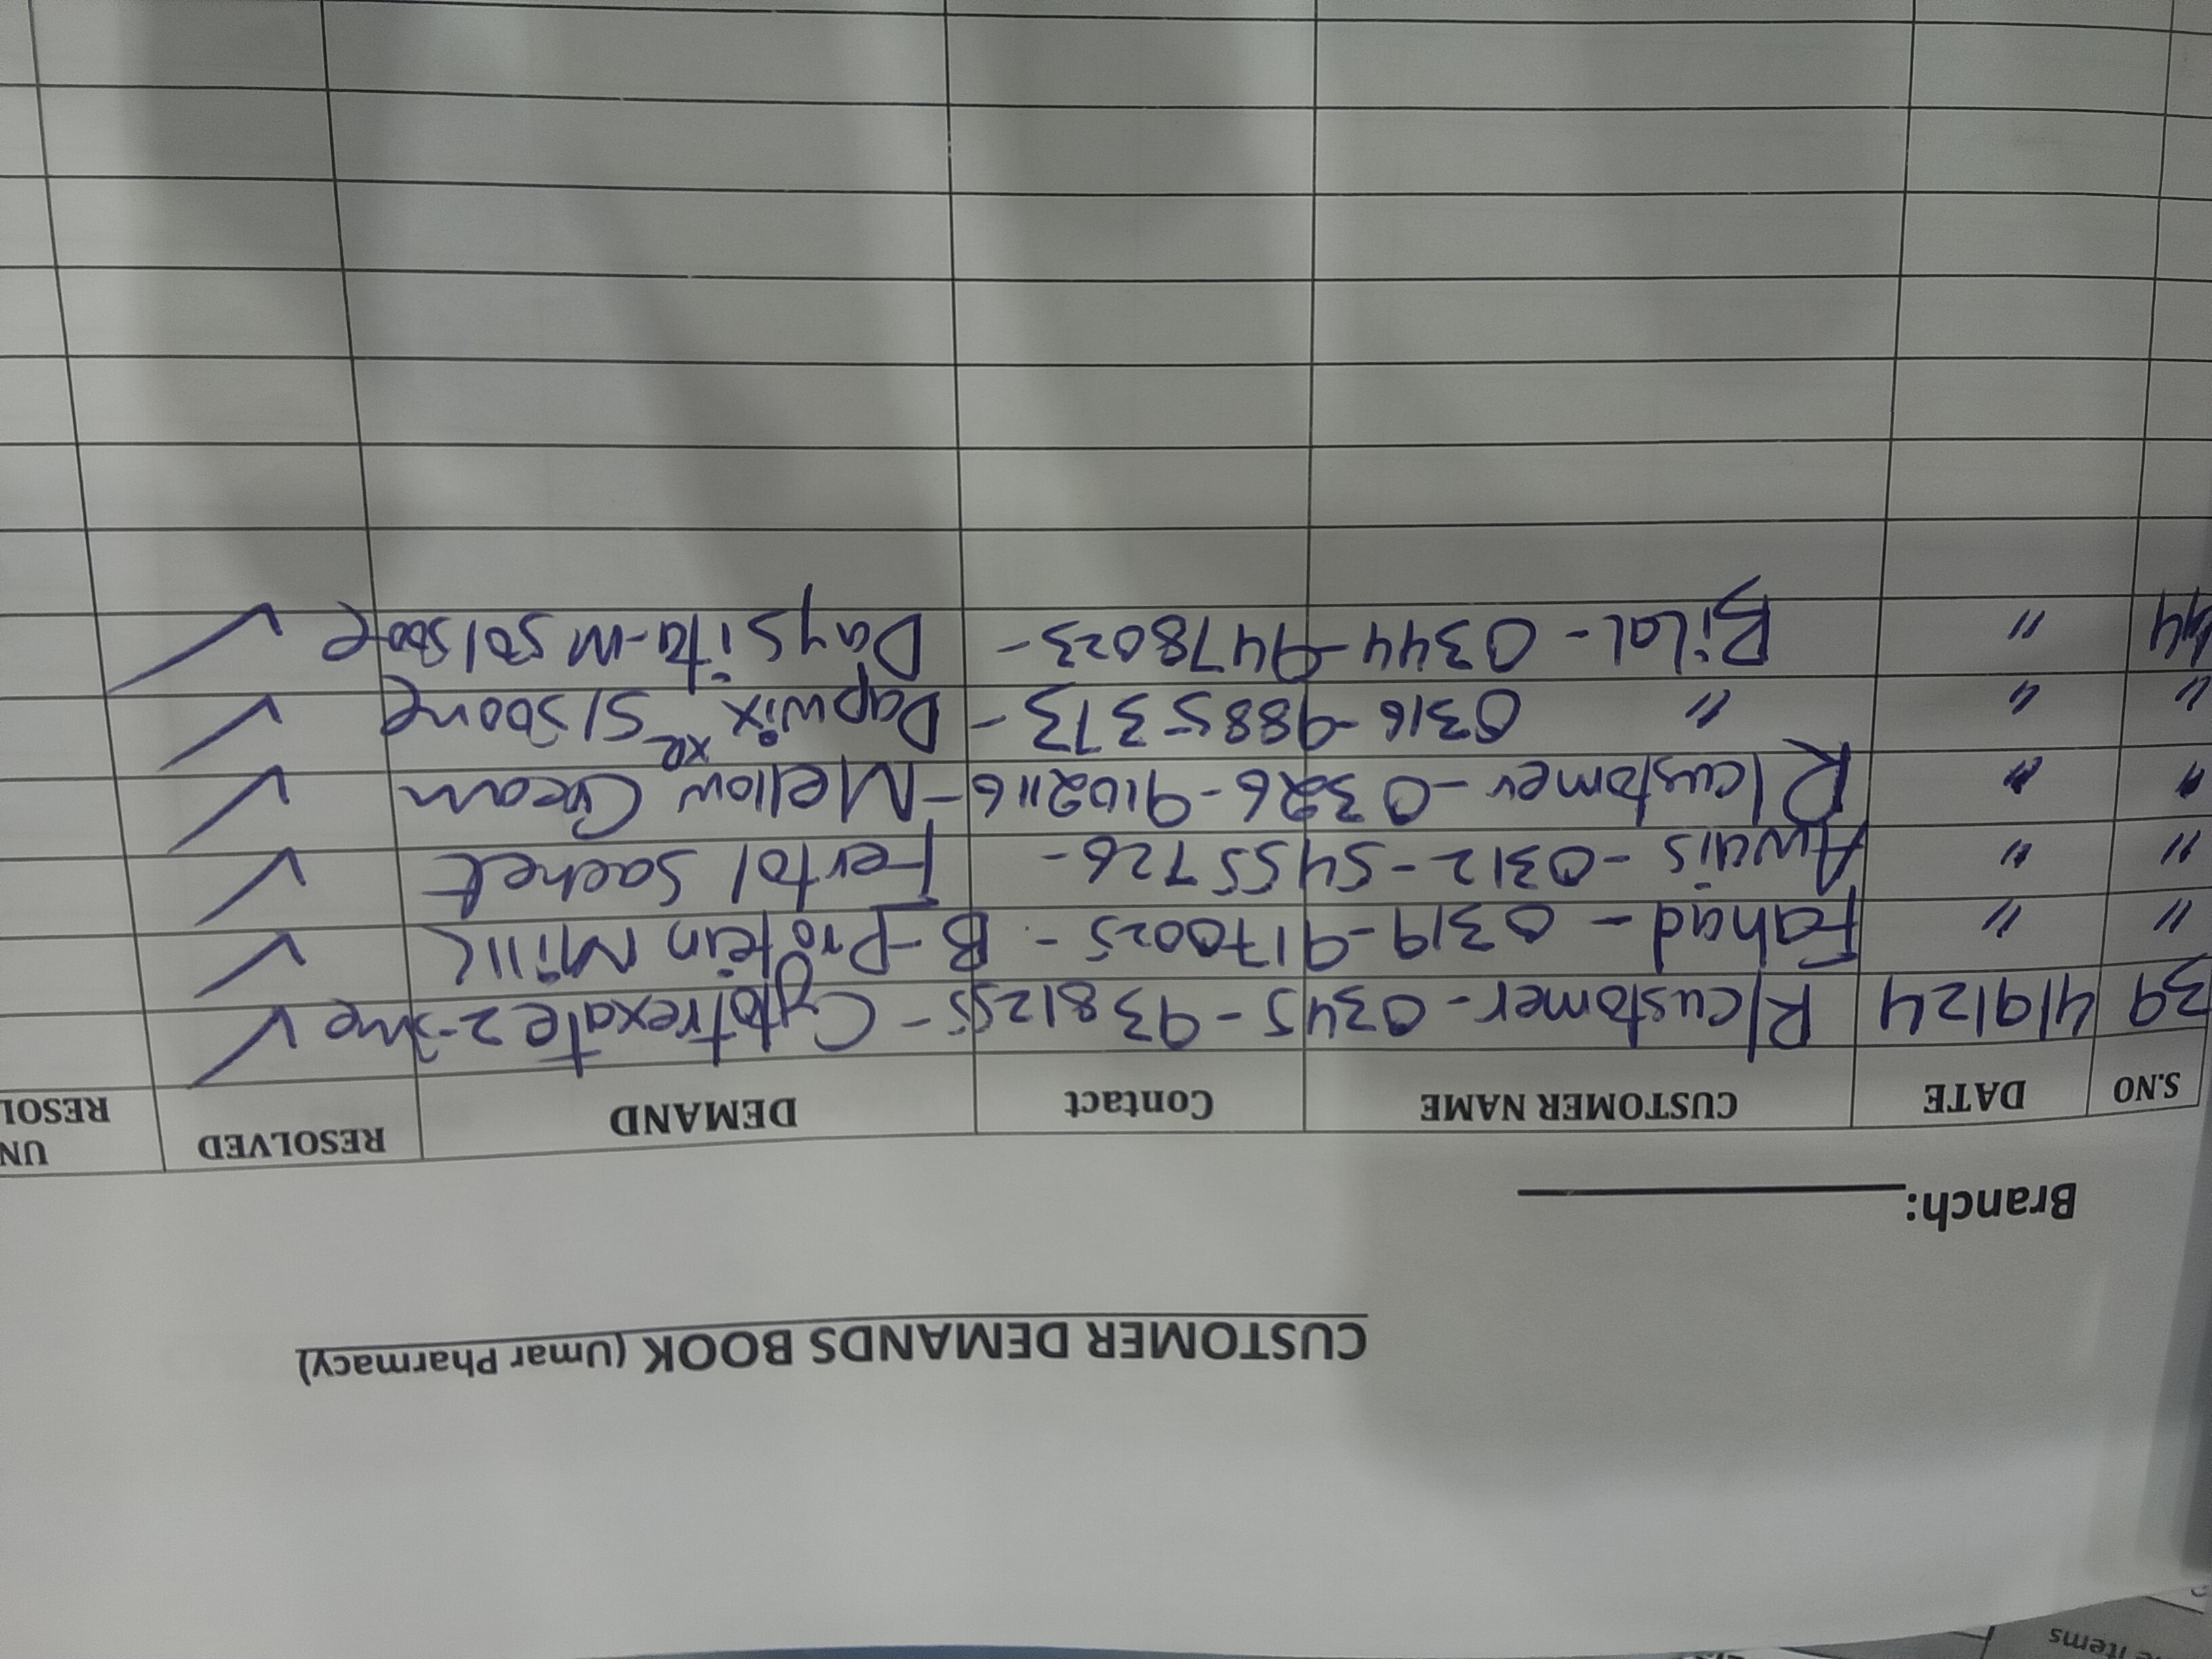 CUSTOMER DEMANDS BOOK (Umar Pharmacy)
Branch:
S.NO DATE CUSTOMER NAME Contact DEMAND RESOLVED UN RESOL
39 4/9/24 R/customer - 0345 - 9381255 - Cytotrexate 2-5mg ✓
" " Fahad - 0319-9170025 - B-Protein Milk ✓
" " Awais - 0312-5455726 - Fertol Sachet ✓
" " R/customer - 0326-9102116 - Mellow Cream ✓
" " " 0316-9885373 - Dapwix XR 5/500mg ✓
44 " Bilal - 0344-9478023 - Daysita-M 50/500 ✓
Items